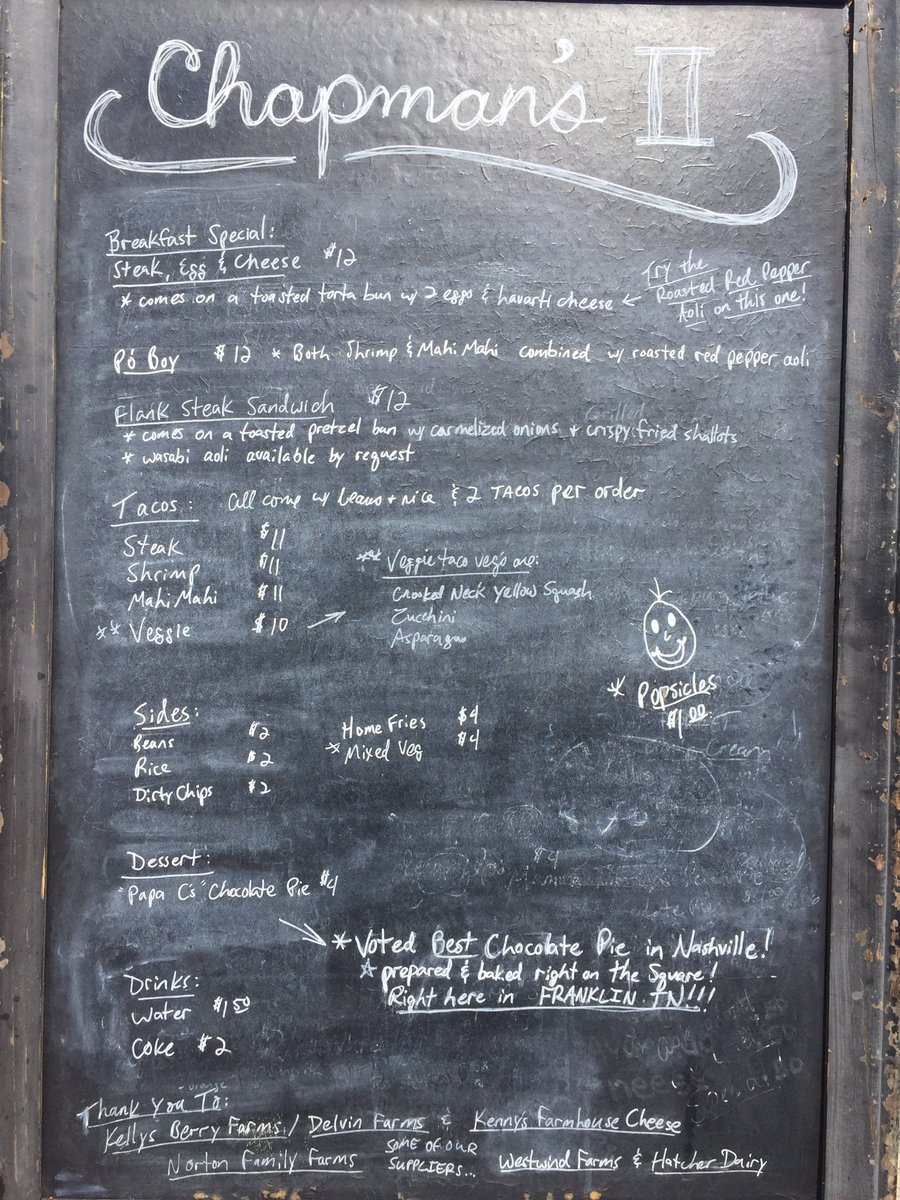 Chapman's II
Breakfast Special:
Steak, Egg & Cheese $12
* comes on a toasted torta bun w/ 2 eggs & havarti cheese ←
Try the
Roasted Red Pepper
Aoli on this one!
Po' Boy $12 * Both Shrimp & Mahi Mahi combined w/ roasted red pepper aoli
Flank Steak Sandwich $12
* comes on a toasted pretzel bun w/ carmelized onions + crispy fried shallots
Grilled
* wasabi aoli available by request
Tacos: all come w/ beans + rice & 2 TACOS per order
Steak $11
Shrimp $11
Mahi Mahi $11
** Veggie $10 →
** Veggie taco veg's are:
Crooked Neck Yellow Squash
Zucchini
Asparagus
* Popsicles
$1.00
Sides:
Beans $2
Rice $2
Dirty Chips $2
Home Fries $4
* Mixed Veg $4
Dessert:
"Papa C's" Chocolate Pie $4
* Voted Best Chocolate Pie in Nashville!
☆ prepared & baked right on the Square!
Right here in FRANKLIN TN!!!
Drinks:
Water $1.50
Coke $2
Thank You To:
Kelly's Berry Farms / Delvin Farms & Kenny's Farmhouse Cheese
Norton Family Farms
SOME OF OUR
SUPPLIERS...
Westwind Farms & Hatcher Dairy